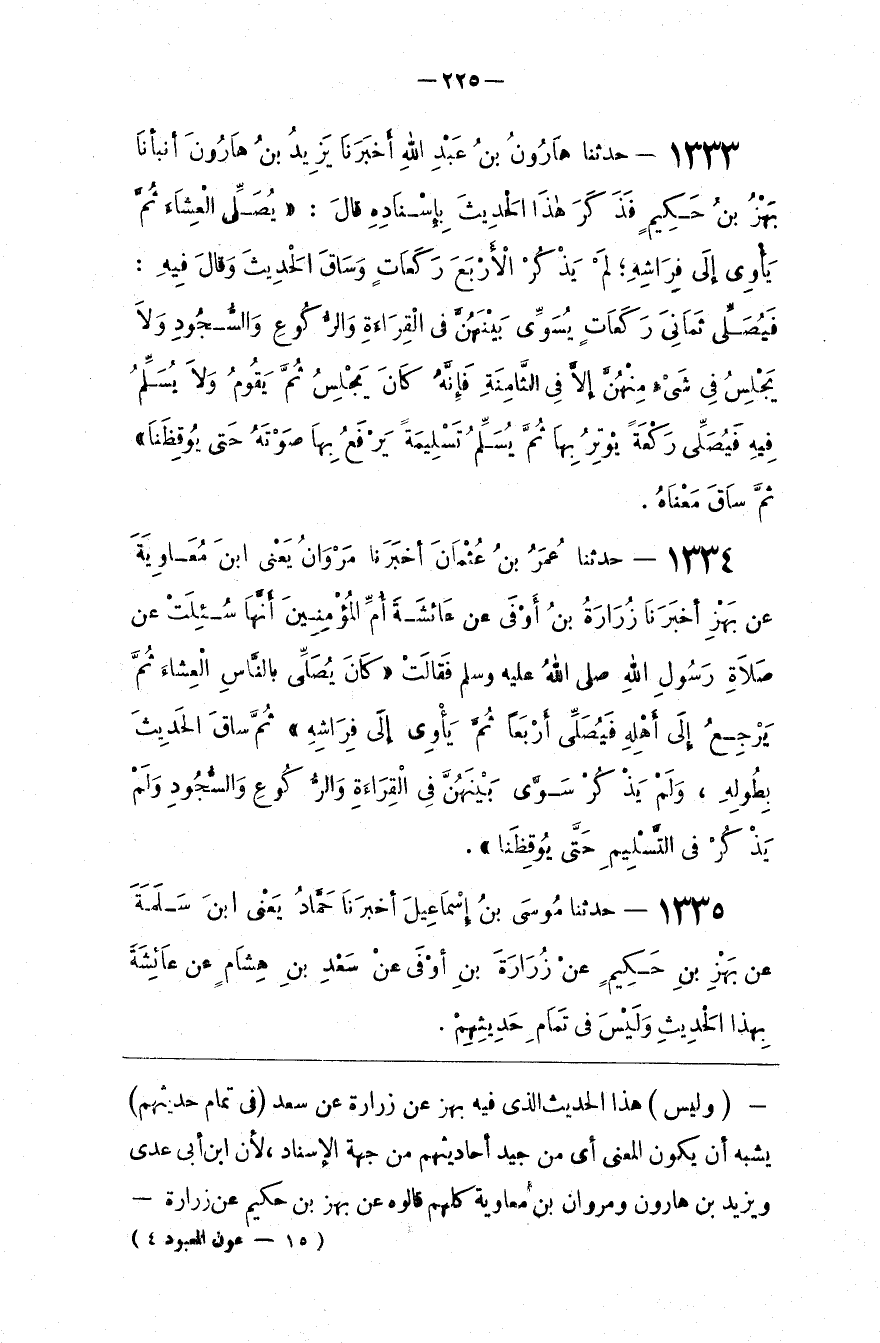 — ٢٢٥ —
١٣٣٣ — حدثنا هَارُونُ بنُ عَبْدِ اللهِ أَخبَرَنَا يَزِيدُ بنُ هَارُونَ أنبأنَا
بَهْزُ بنُ حَـكِيمٍ فَذَ كَرَ هٰذَا الْحَدِيثَ بِإِسْـنَادِهِ قالَ : « يُصَـلِّى الْعِشَاءَ ثُمَّ
يَأْوِى إِلَى فِرَاشِهِ؛ لَمْ يَذْ كُرْ الْأَرْبَعَ رَكَعَاتٍ وَسَاقَ الْحَدِيثَ وَقالَ فِيهِ :
فَيُصَـلِّى ثَمَانِىَ رَكَعَاتٍ يُسَوِّى بَيْنَهُنَّ فى الْقِرَاءَةِ وَالرُّ كُوعِ وَالسُّـجُودِ وَلاَ
يَجْلِسُ فِى شَىْءٍ مِنْهُنَّ إلاَّ فِى الثَّامِنَةِ فَإِنَّهُ كَانَ يَجْلِسُ ثُمَّ يَقُومُ وَلاَ يُسَلِّمُ
فِيهِ فَيُصَلِّى رَكْعَةً يُوتِرُ بِهاَ ثُمَّ يُسَلِّمُ تَسْلِيمَةً يَرْفَعُ بِهاَ صَوْتَهُ حَتى يُوقِظَنَا»
ثمَّ ساَقَ مَعْنَاهُ .
١٣٣٤ — حدثنا عُمَرُ بنُ عُثْمَانَ أخبَرَنا مَرْوَانُ يَعْنى ابنَ مُعَـاوِيَةَ
عن بَهْزٍ أخبَرَنَا زُرَارَةُ بنُ أَوْفَى عن عَائشَـةَ أُمِّ الْمُؤْمِنِـينَ أَنَّهَا سُـئِلَتْ عن
صَلاَةِ رَسُولِ اللهِ صلى اللهُ عليه وسلم فَقالَتْ « كَانَ يُصَلِّى بالنَّاسِ الْعِشاءَ ثُمَّ
يَرْجِـعُ إِلَى أَهْلِهِ فَيُصَلِّى أَرْبَعاً ثُمَّ يَأْوِى إلَى فِرَاشِهِ » ثُمَّ ساقَ الحَدِيثَ
بِطُولِهِ ، وَلَمْ يَذْ كُرْ سَـوَّى بَيْنَهُنَّ فِى الْقِرَاءَةِ وَالرُّ كُوعِ وَالسُّجُودِ وَلَمْ
يَذْ كُرْ فى التَّسْلِيمِ حَتَّى يُوقِظَنا » .
١٣٣٥ — حدثنا مُوسَى بنُ إِسْمَاعِيلَ أخبرَنَا حَمَّادُ يَعْنى ابنَ سَـلَمَةَ
عن بَهْزِ بنِ حَـكِيمٍ عنْ زُرَارَةَ بنِ أوْفَى عنْ سَعْدِ بنِ هِشَامٍ عن عائِشَةَ
بِهذا الحَدِيثِ وَلَيْسَ فى تَمَامِ حَدِيثِهِمْ .
— ( وليس ) هذا الحديث الذى فيه بهز عن زرارة عن سعد (فى تمام حديثهم)
يشبه أن يكون المعنى أى من جيد أحاديثهم من جهة الإسناد ، لأن ابن أبى عدى
ويزيد بن هارون ومروان بن معاوية كلهم قالوه عن بهز بن حكيم عن زرارة —
( ١٥ — عون المعبود ٤ )